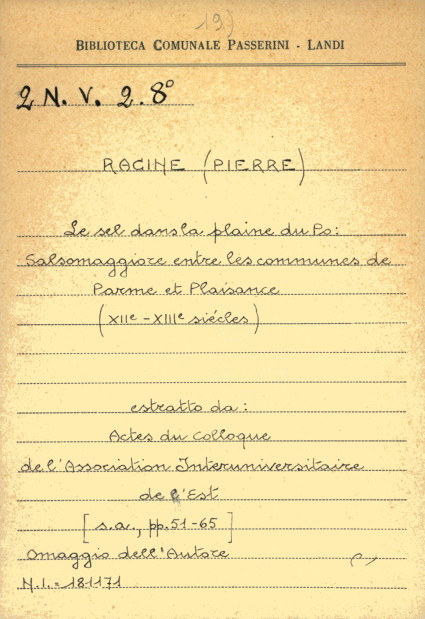 19)
BIBLIOTECA COMUNALE PASSERINI - LANDI
2 N. V. 2.8°
RACINE (PIERRE)
Le sel dans la plaine du Po:
Salsomaggiore entre les communes de
Parme et Plaisance
(XIIe - XIIIe siécles)
estratto da:
Actes du Colloque
de l'Association Interuniversitaire
de l'Est
[s.a., pp. 51-65]
Omaggio dell'Autore
N.I. = 181171